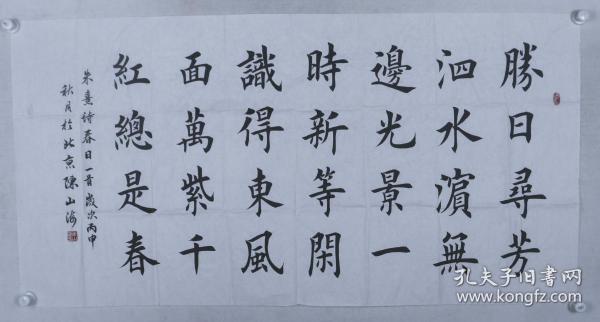 勝日尋芳
泗水濵無
邊光景一
時新等閑
識得東風
面萬紫千
紅總是春
朱熹詩春日一首歲次丙申
秋月於北京陳山海
孔夫子旧书网
www.kongfz.com